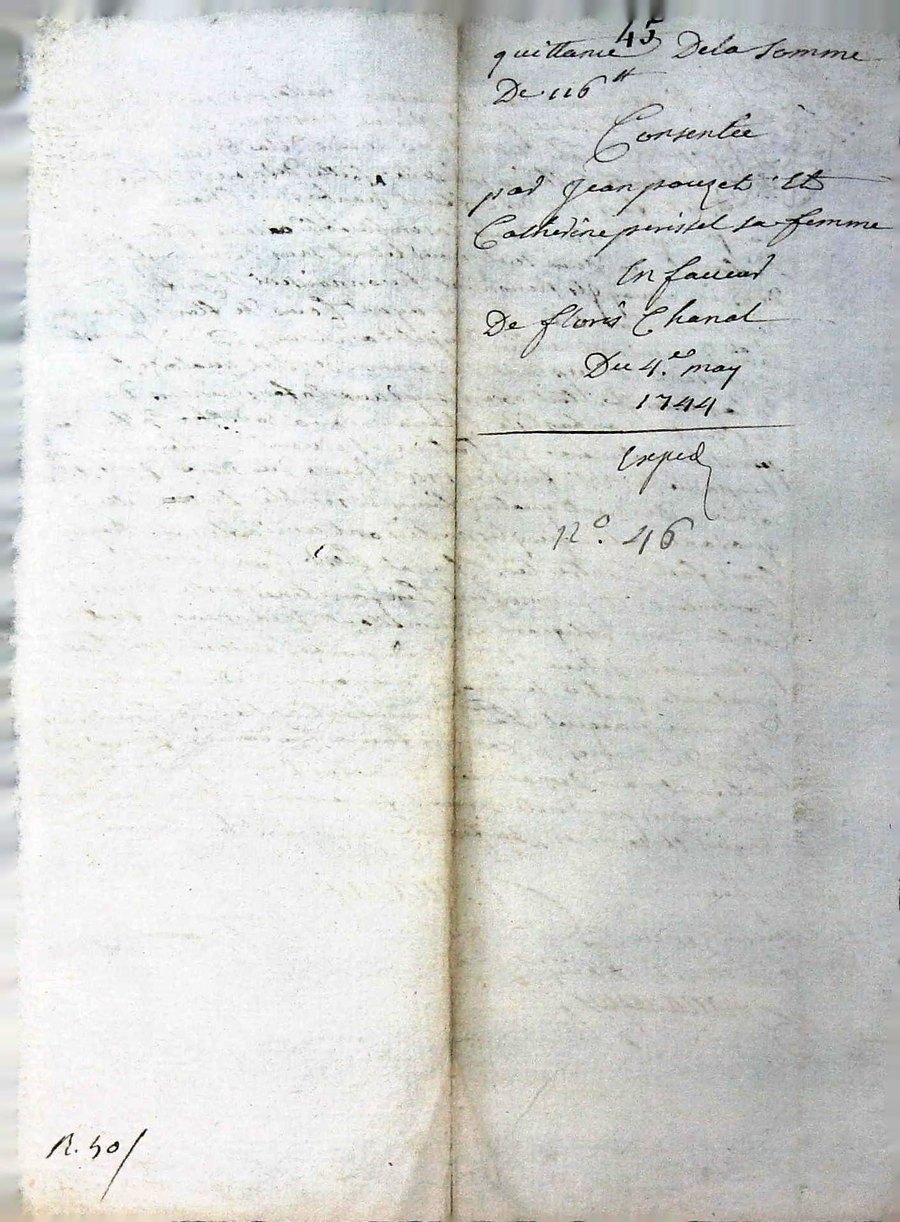 45
quittance De la somme
De 116 ₶
Consentée
par Jean pouzet Et
Catherine perissel sa femme
En faueur
De floris Chanal
Du 4.e may
1744
Exped
N.o 46
R. 50/